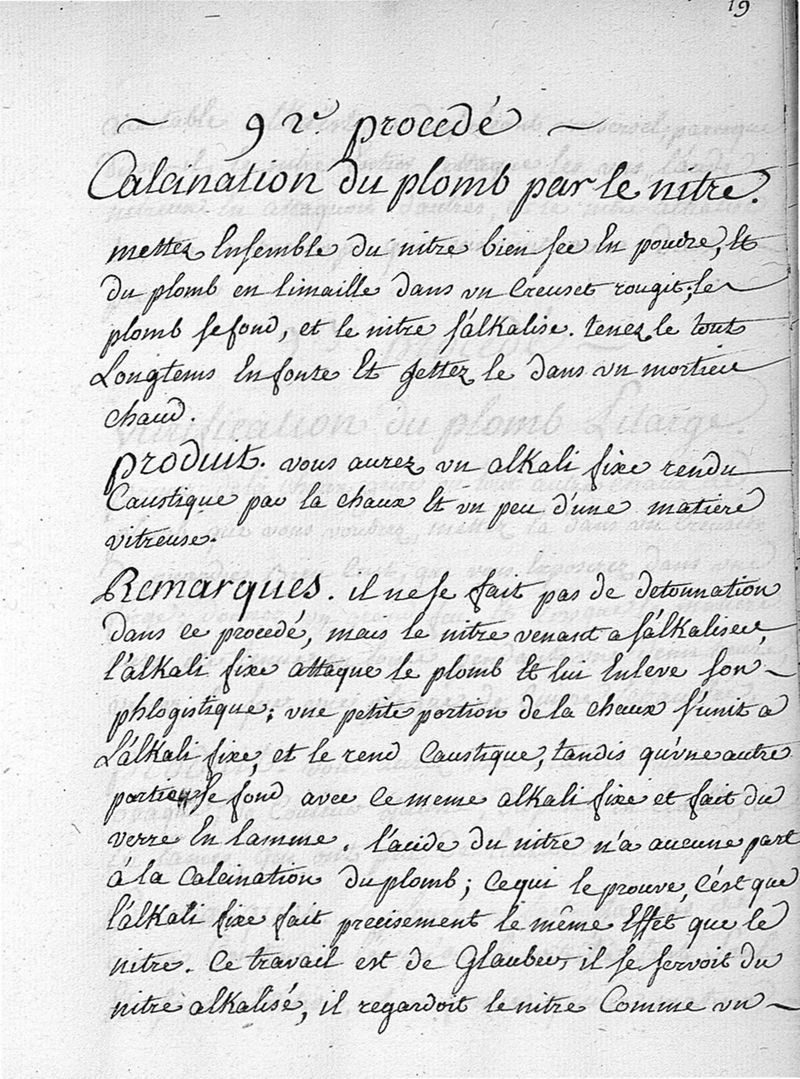 19
~ 92e. procedé ~
Calcination du plomb par le nitre.
mettez Ensemble du nitre bien sec En poudre, Et
du plomb en limaille dans un Creuset rougit; le
plomb se fond, et le nitre s'alkalise. tenez le tout
Longtems En fonte Et jettez le dans un mortier
chaud.
produit. vous aurez un alkali fixe rendu
Caustique par la chaux Et un peu d'une matiere
vitreuse.
Remarques. il ne se fait pas de detonnation
dans ce procedé, mais le nitre venant a s'alkaliser,
l'alkali fixe attaque le plomb Et lui Enleve son
phlogistique; une petite portion de la chaux s'unit a
L'alkali fixe, et le rend Caustique, tandis qu'une autre
partie se fond avec ce meme alkali fixe et fait du
verre En lamme. l'acide du nitre n'a aucune part
à la Calcination du plomb; ce qui le prouve, c'est que
l'alkali fixe fait precisement le même Effet que le
nitre. Ce travail est de Glauber, il se servoit du
nitre alkalisé, il regardoit le nitre Comme un